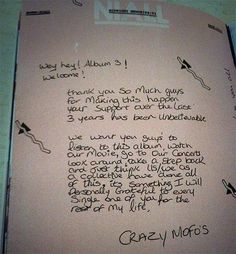 NIALL
Hey hey! Album 3!
Welcome!
thank you So Much guys
for Making this happen
your Support over the Last
3 years has been Unbelievable
We want you guys to
listen to this album, watch
our Movie, go to Our Concerts
look around, take a step back
and Just think Us/we as
a Collective have done all
of this. its Something I will
Personally Grateful to every
Single one of you for the
rest of My life.
CRAZY MOFO'S